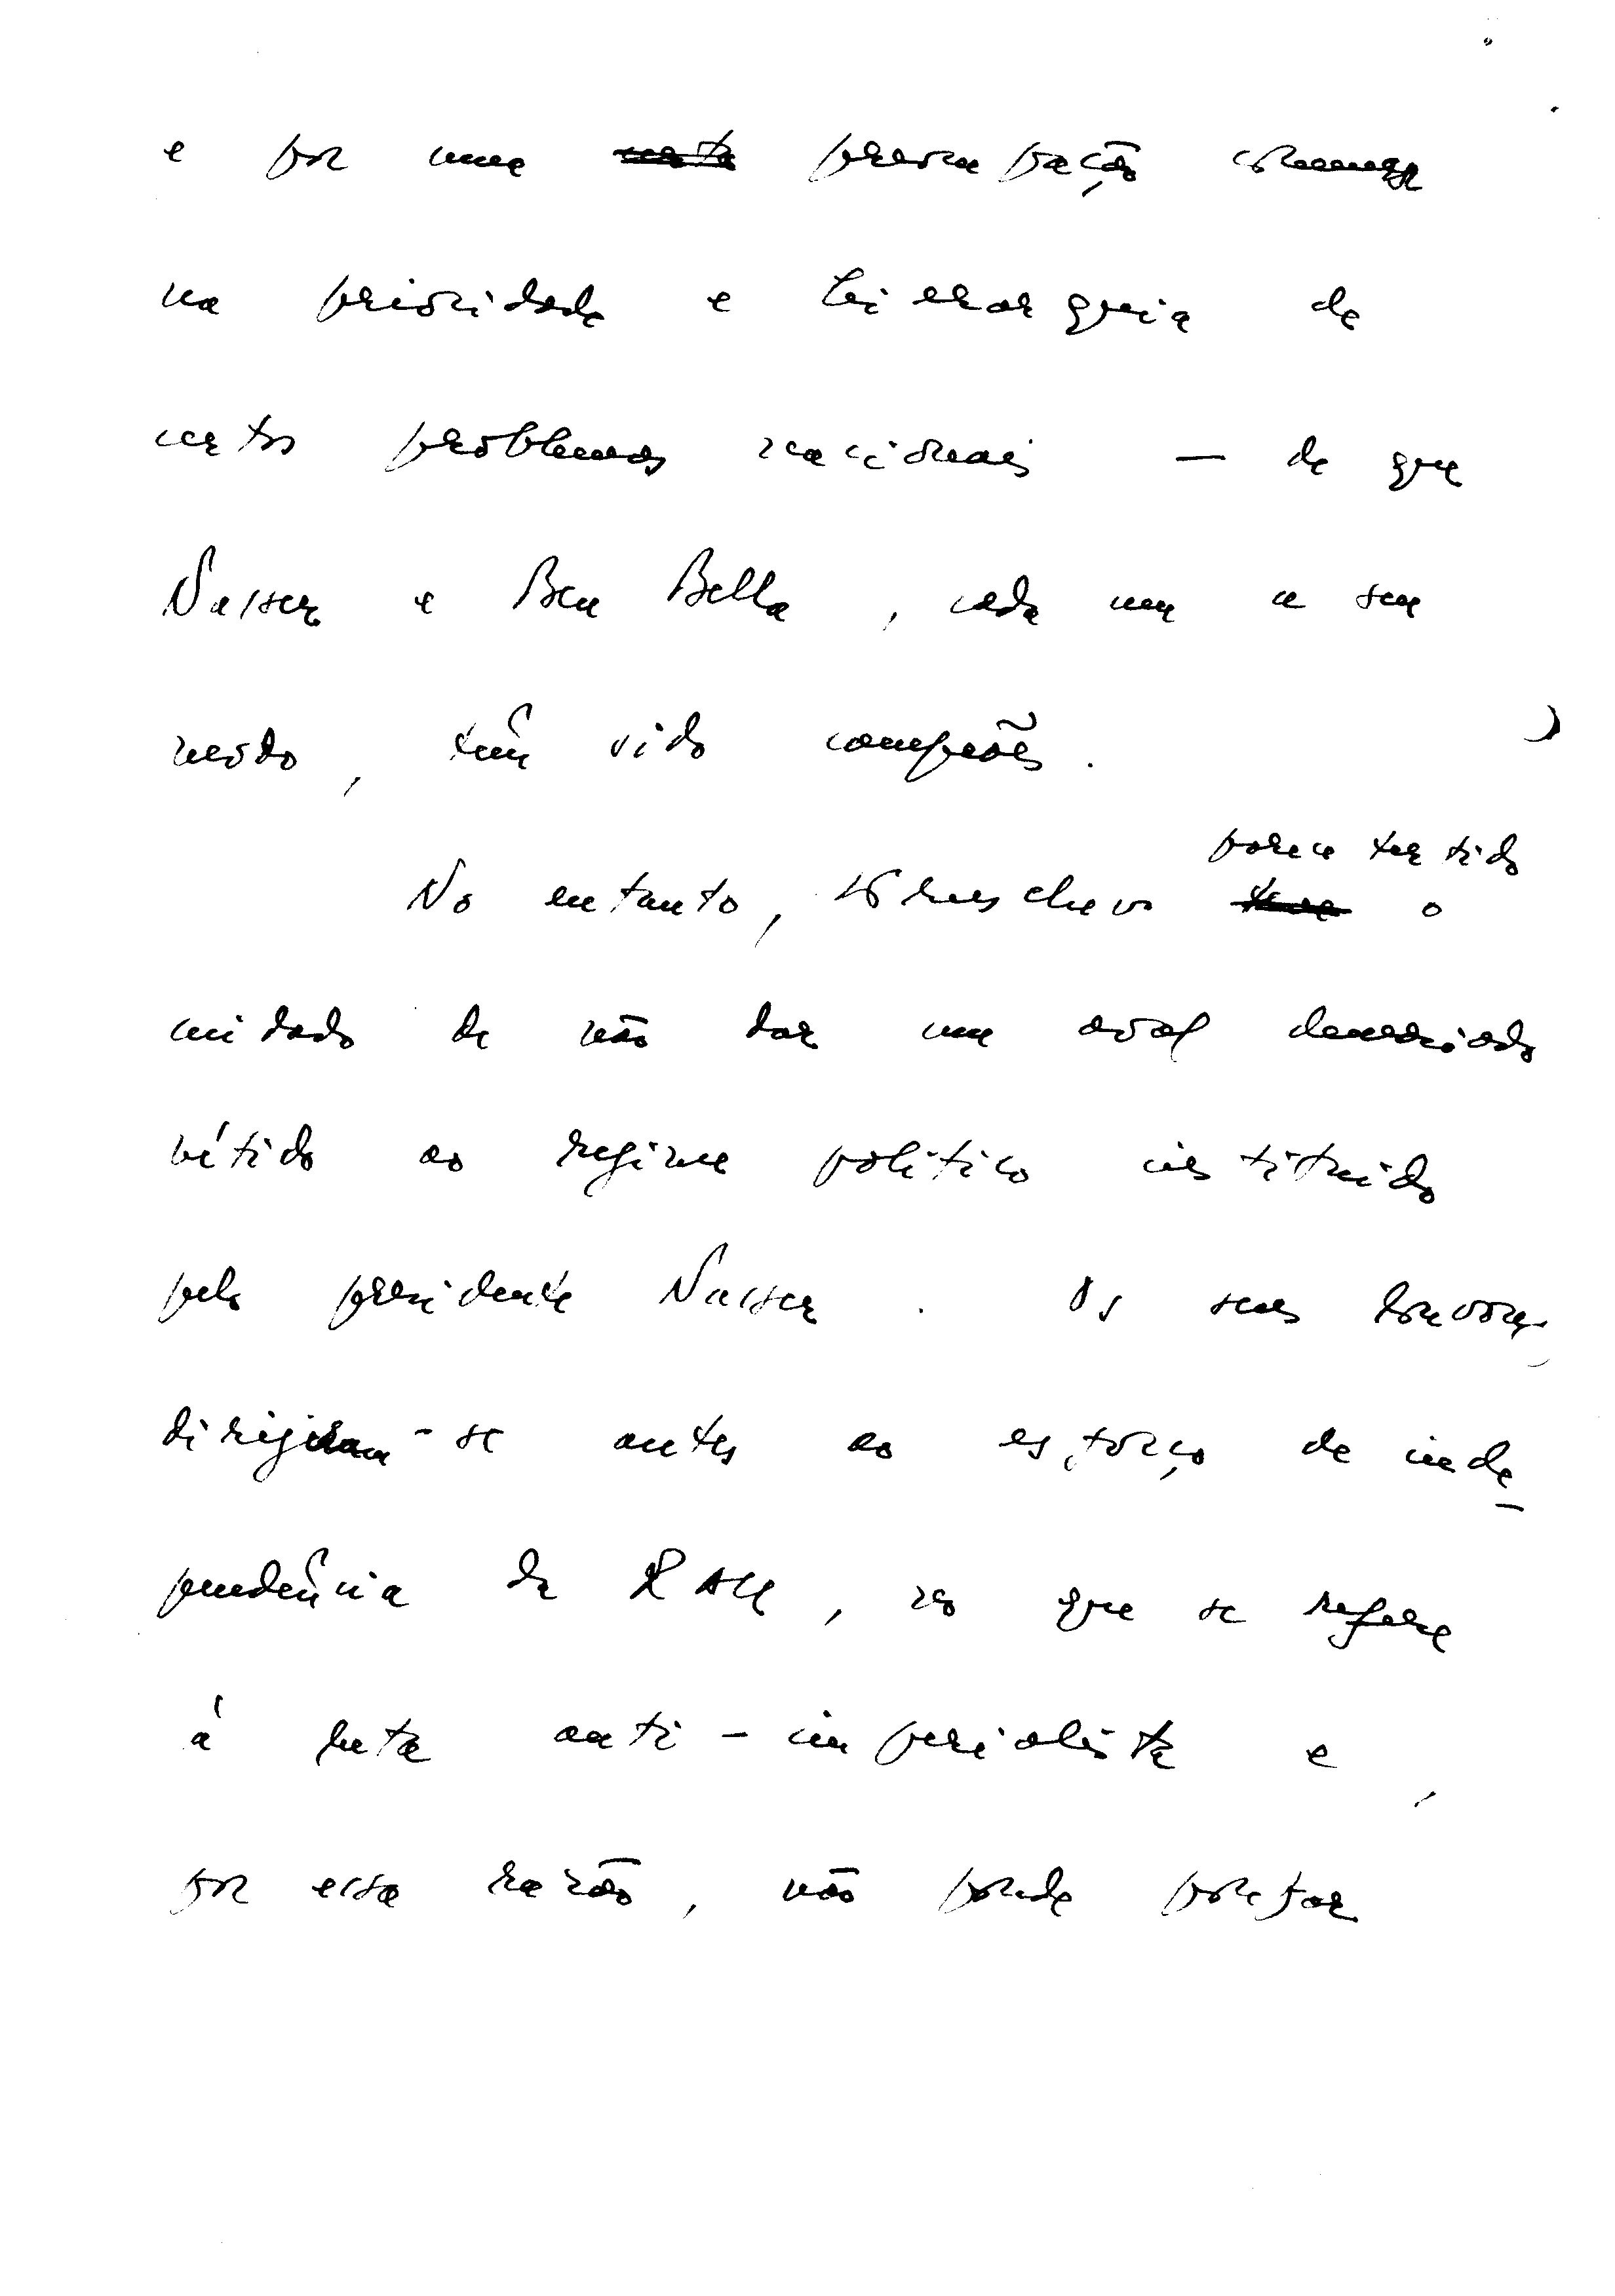 e por uma certa preocupação comum
na prioridade e hierarquia de
certos problemas nacionais — de que
Nasser e Ben Bella, cada um a seu
modo, têm sido campeões.
parece ter tido
No entanto, Khruschev teve o
cuidado de não dar um aval demasiado
nítido ao regime político instituído
pelo presidente Nasser. Os seus louvores
dirigiram-se antes ao esforço de inde-
pendência da RAU, no que se refere
à luta anti-imperialista e,
por essa razão, não pode prestar